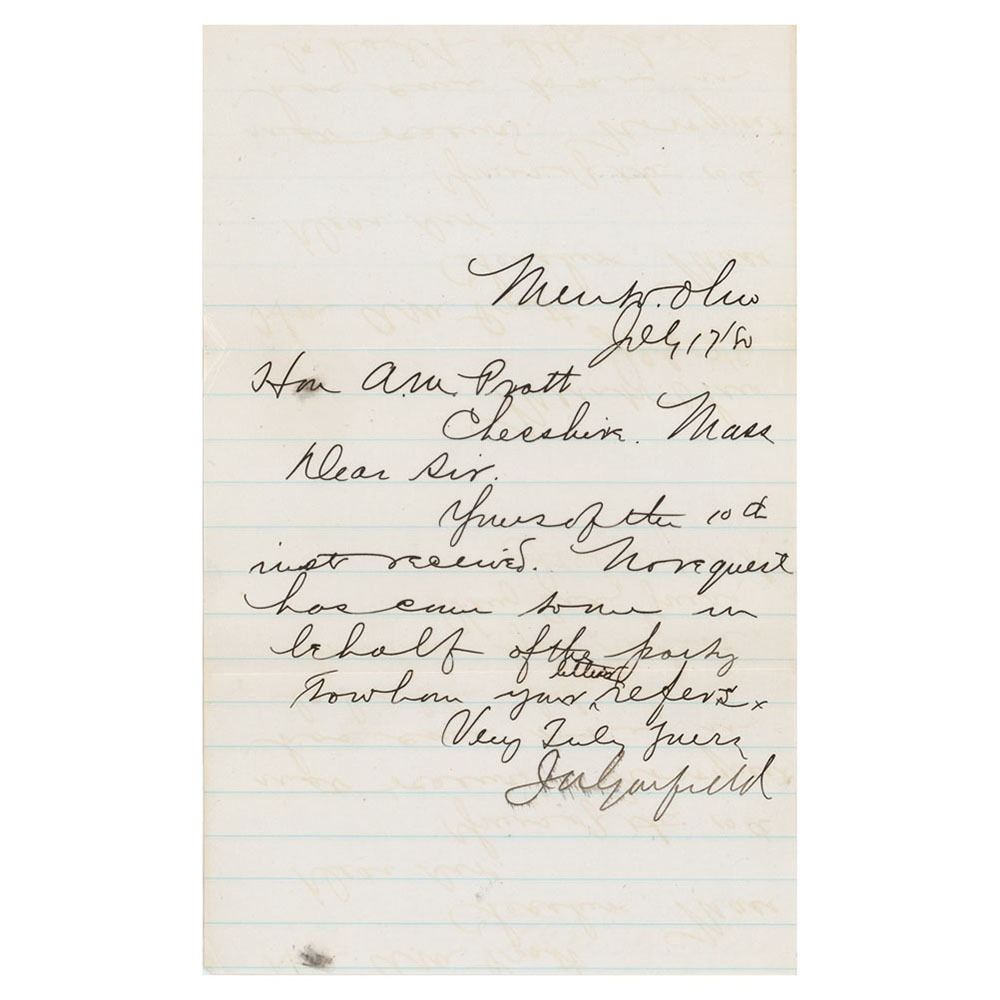 Mentor. Ohio
July 17/80
Hon A.M. Pratt
Cheshire. Mass
Dear Sir.
Yours of the 10th
inst received. No request
has come to me in
behalf of the party
to whom your letter refers.
Very Truly Yours
J A Garfield